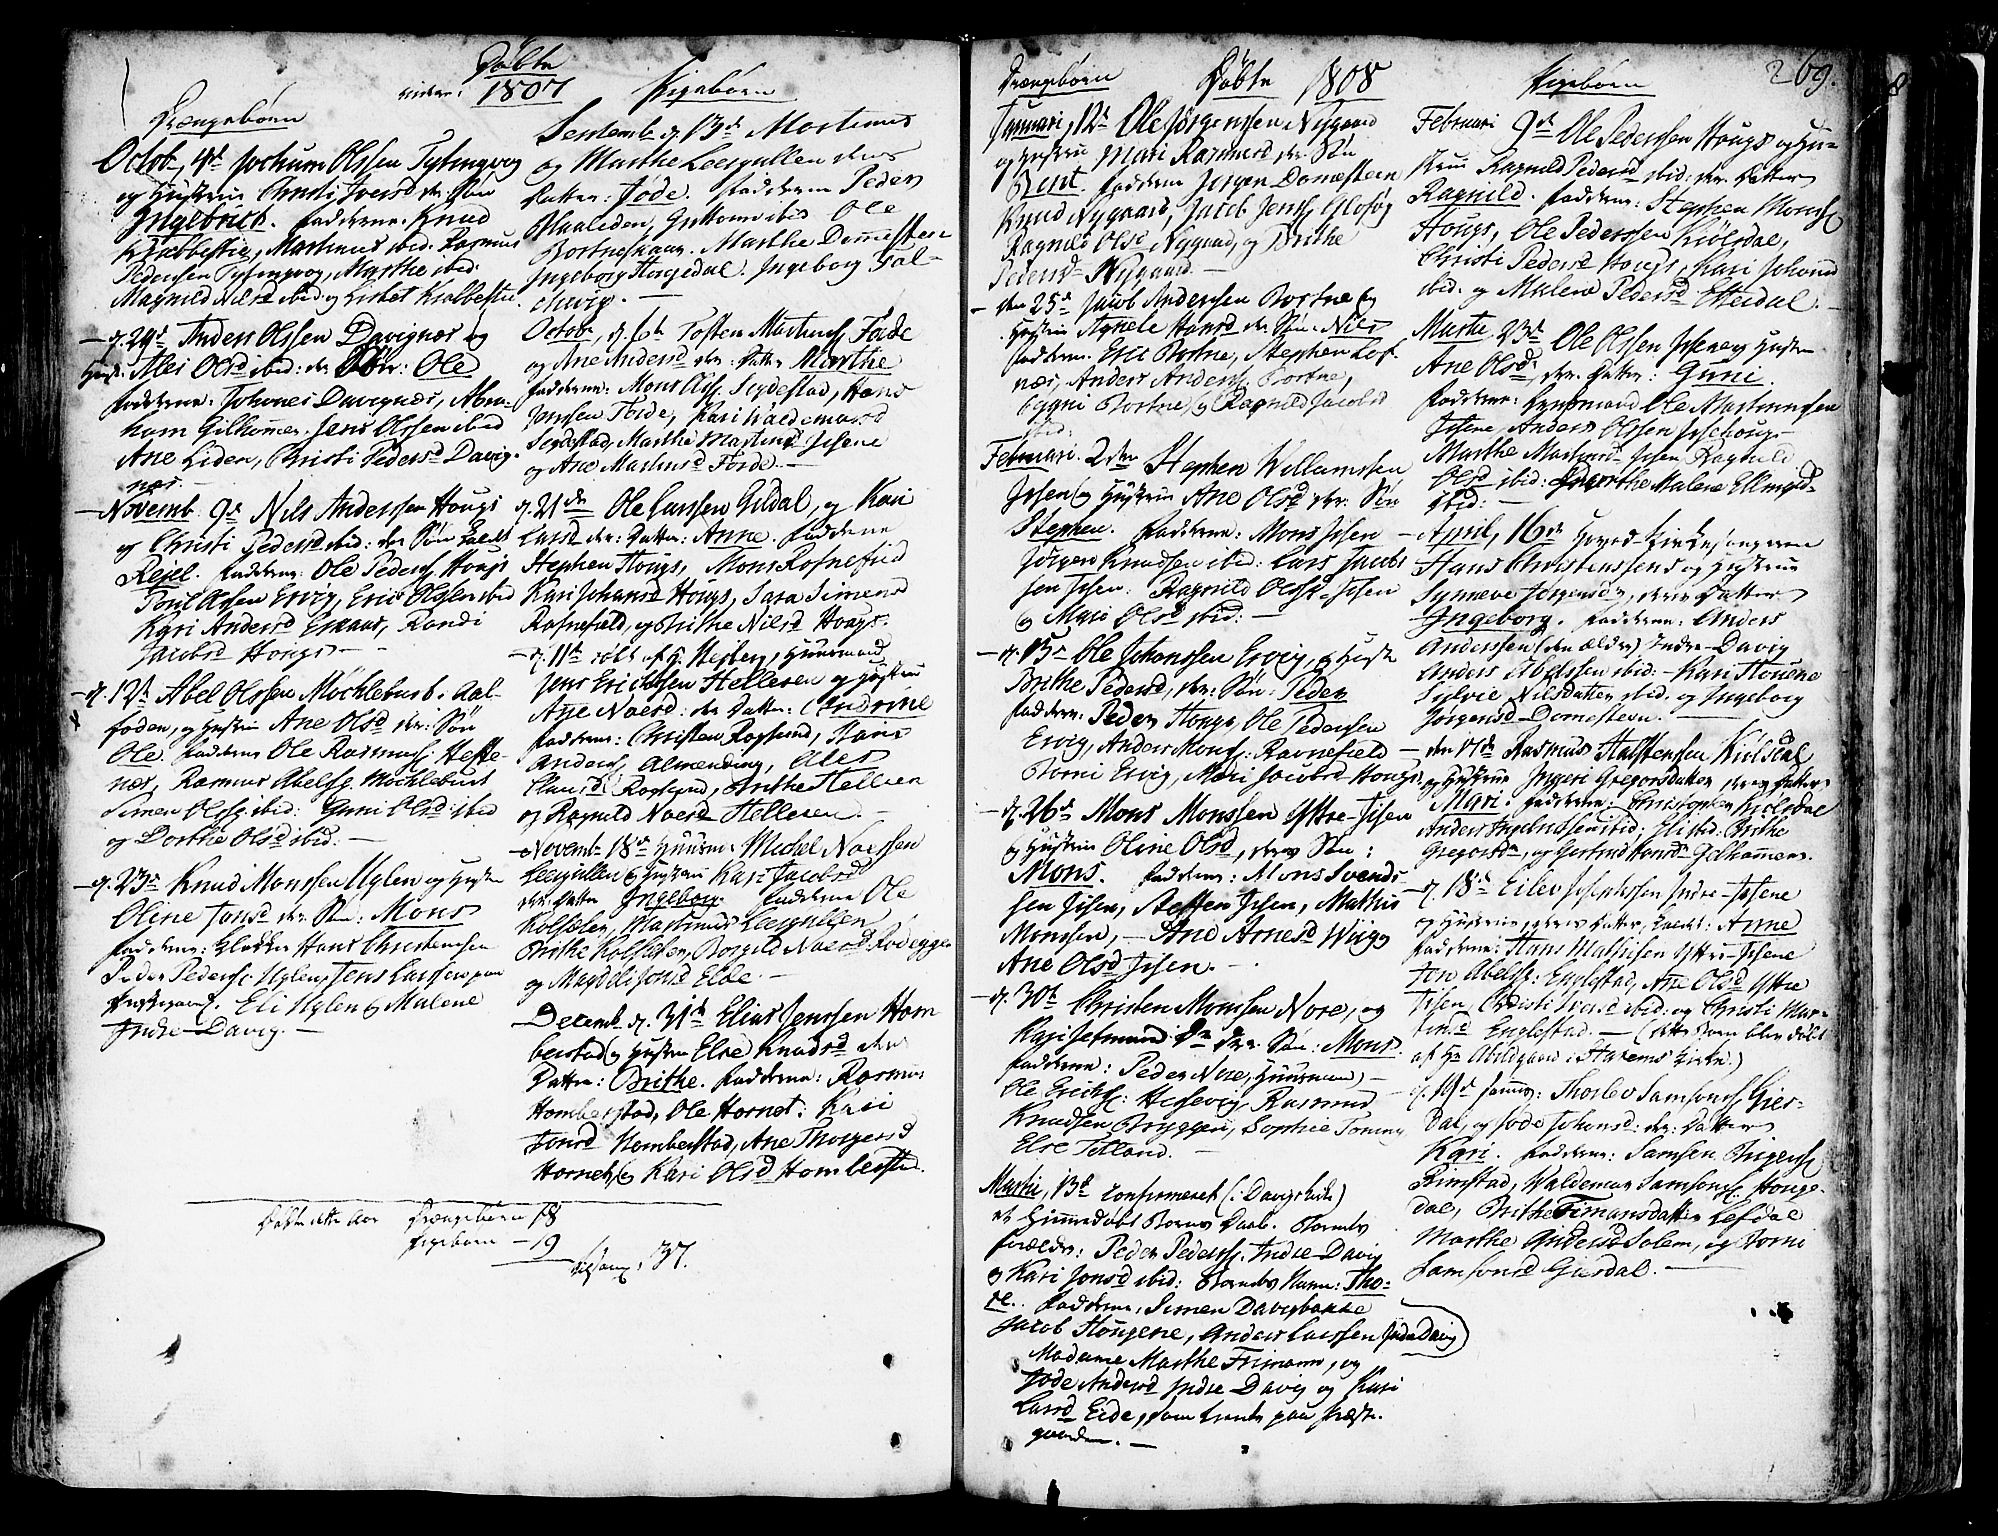 Døbte
1807
Drængebørn
Octob. 4de Jochum Olssen Tytingvog
og Hustrue Christi Iversd der: Søn
Ingebrict. Fadderne: Knud
Krabbestig, Martinus ibid. Rasmus
Pedersen Tytingvog, Marthe ibid.
Magnild Nilsd ibid og Lisbet Krabbestie
d. 29de Anders Olssen Davignæs og
Hust. Ales Olsd ibid: der Søn: Ole
Fadderne: Johanes Davignæs, Abra-
ham Gilhammer. Jens Olssen ibid
Ane Liden, Christi Pedersd Davig-
næs.
Novemb. 9de Nils Anderssen Hougs
og Christi Pedersd ibid: der Søn kaldt
Rejel. Fadderne: Ole Peders: Hougs
Poul Olssen Ervig, Eric Olssen ibid
Kari Andersd Ervig, Randi
Jacobsd Hougs
d. 12te Abel Olssen Møchlebust. Aal-
foden, og Hustrue Ane Olsd der: Søn
Ole. Fadderne Ole Rasmuss: Heste-
næs, Rasmus Abelss: Mochlebust
Simen Olss: ibid: Guni Olsd: ibid
og Dorthe Olsd ibid.
d. 23de Knud Monssen Uglen og Hustr
Oline Jonsd der: Søn: Mons
Fadderne: Klokker Hans Christensen
Peder Peders: Uglen, Jens Larssen paa
Eli Uglen og Malene
Indre-Davig.
Pigebørn
Septemb. d. 13de Martinus
og Marthe Leegullen deres
Datter: Jøde. Fadderne Peder
Haaleden, Guttorm ibid Ole
Bortneskaar. Marthe Domesteen
Ingeborg Hougedal. Ingeborg Dal-
Octobr. d. 6te Tosten Martins: Førde
og Ane Andersd der: Datter Marthe
Fadderne: Mons Ols: Sejdestad, Hans
Jonssen Førde, Kari Waldemarsd
Sejdestad, Marthe Martinsd Jisene
og Ane Martinsd Førde.
d. 21de Ole Larssen Gildal, og Kari
Larsd der: Datter: Anne. Fadderne
Stephen Hougs, Mons Rafnefield
Kari Johansd Hougs, Sara Simensd
Rafnefield, og Brithe Nilsd Hougs.
d. 11te døbt af H. Nesberg, Huusmand
Jens Erichssen Hellesen og Hustrue
Ane Naersd: der Datter: Andrine
Fadderne: Christen Roglund, Hans
Anders: Almending, Ales
Clausd Roglund, Brithe Hellesen
og Ragnild Naersd Hellesen.
Novemb. 18de Huusm. Michel Naessen
Leegullen og Hustrue Kari Jacobsd
der: Datter Ingeborg. Fadderne Ole
Kolseten, Martinus Leegullen
Brithe Kolseten, Borgild Naersd Rodeggen
og Magdeli Jonsd Elde.
Decemb. d. 31te Elias Jenssen Hom
berstad og Hustrue Else Knudsd der
Datter: Brithe. Fadderne: Rasmus
Homberstad, Ole Hornet: Kari
Jonsd Homberstad, Ane Thorgersd
Hornet, og Kari Olsd Homberstad.
Døbte dette Aar Drængebørn 18
Pigebørn 19
tilsam: 37.
269.
Drængebørn Døbte 1808
Januari, 12te Ole Jørgenssen Nygaard
og Hustrue Mari Rasmusd der: Søn
Bent. Fadderne Jørgen Domesteen
Knud Nygaard, Jacob Jens: Glosøg
Ragnild Olsd Nygaard, og Brithe
Pedersd Nygaard.
den 25de Jacob Anderssen Bortne og
Hustrue Agnete Hansd der Søn: Nils
Fadderne: Eric Bortne, Stephen Lef-
næs, Anders Anders: Bortne,
Sygni Bortne og Ragnild Jacobsd
ibid.
Februari. 2den Stephen Willumssen
Jisen og Hustrue Ane Olsd der: Søn
Stephen. Fadderne: Mons Jisen
Jørgen Knudssen ibid: Lars Jacobs
sen Jisen: Ragnild Olsd Jisen
og Mari Olsd ibid:
d. 15de Ole Johanssen Ervig, og Hustr
Brithe Pedersd, der: Søn: Peder
Fadderne: Peder Hougs, Ole Pedersen
Ervig, Anders Mons: Ravnefield
Borni Ervig, Mari Jacobsd Hougs.
d. 26de Mons Monssen Yttre-Jisen
og Hustrue Oline Olsd, deres Søn:
Mons. Fadderne: Mons Svends
sen Jisen, Steffen Jisen, Mathis
Monssen, Ane Arnesd Wiig
Ane Olsd Jisen.
d. 30te Christen Monssen Nore, og
Kari Setmunds Dr der: Søn: Mons.
Fadderne: Peder Nore, Huusmand
Ole Erichs: Hessevig, Rasmus
Knudsen Bryggen, Sophie Toning
Else Totland.
Martii, 13de confirmeret (i Davigs kirke)
et Hiemmedøbt Barns Daab. Barnets
Forældre: Peder Peders: Indre-Davig
og Kari Jonsd ibid: Barnets Navn: Tho-
re. Fadderne: Simen Davigbakke
Jacob Hougene, Anders Larssen Indre Davig
Madame Marthe Frimann, og
Jøde Andersd Indre-Davig og Kari
Larsd Eide, som paa Præste-
gaarden.
Pigebørn
Februari 9de Ole Pederssen Hougs og Hu-
strue Ragnild Pedersd ibid: der: Datter
Ragnild. Fadderne: Stephen Mons:
Hougs, Ole Pederssen Kiølsdal,
Christi Pedersd Hougs, Kari Johansd
ibid. og Malene Pedersd Endal.
Martii, 23de Ole Olssen Jisene og Hustr
Ane Olsd, der: Datter: Guni.
Fadderne: Lensmand Ole Martinussen
Jisene, Anders Olssen
Marthe Martinsd Jisen, Ragnild
Olsd ibid: Marthe Malene
ibid:
April, 16de Hoved-Kirkesangeren
Hans Christenssens og Hustrue
Synneve Jørgensdr, deres Datter
Ingeborg. Fadderne: Anders
Anderssen (den ældre) Indre-Davig
Anders Abelssen ibid: Kari Hougene
Sylvie Nilsdatter ibid. og Ingeborg
Jørgensd Domesteen.
den 17de Rasmus Halstensen Kiølsdal
og Hustrue Ingeri Gregorsdatter, deres Datter
Mari: Fadderne: Christopher Kiølsdal
Anders Ingebrigtsen ibid: Eli ibid: Brithe
Gregorsdr, og Gertrud Hansdr Gilhammer.
d. 18de Eilev Josephssen Indre-Jisene
og Hustrue, deres Datter, kaldt: Anne
Fadderne: Hans Mathisen Yttre-Jisene
Jon Abels: Englestad, Ane Olsd Yttre
Jisen, Christi Iversd ibid: og Christi Mar-
tinsd Englestad. (Dette Barn blev døbt
af Hr Abildgaard i Starems Kirke.)
d. 19de Thorlev Samsons: Gier-
dal, og Jøde Johansd: der: Datter
Kari. Fadderne: Samsen Birgers:
Rimstad, Waldemar Samsons: Houge-
dal, Brithe Timansdatter Lefdal
Marthe Andersd Solem, og Borni
Samsonsd Gierdal.